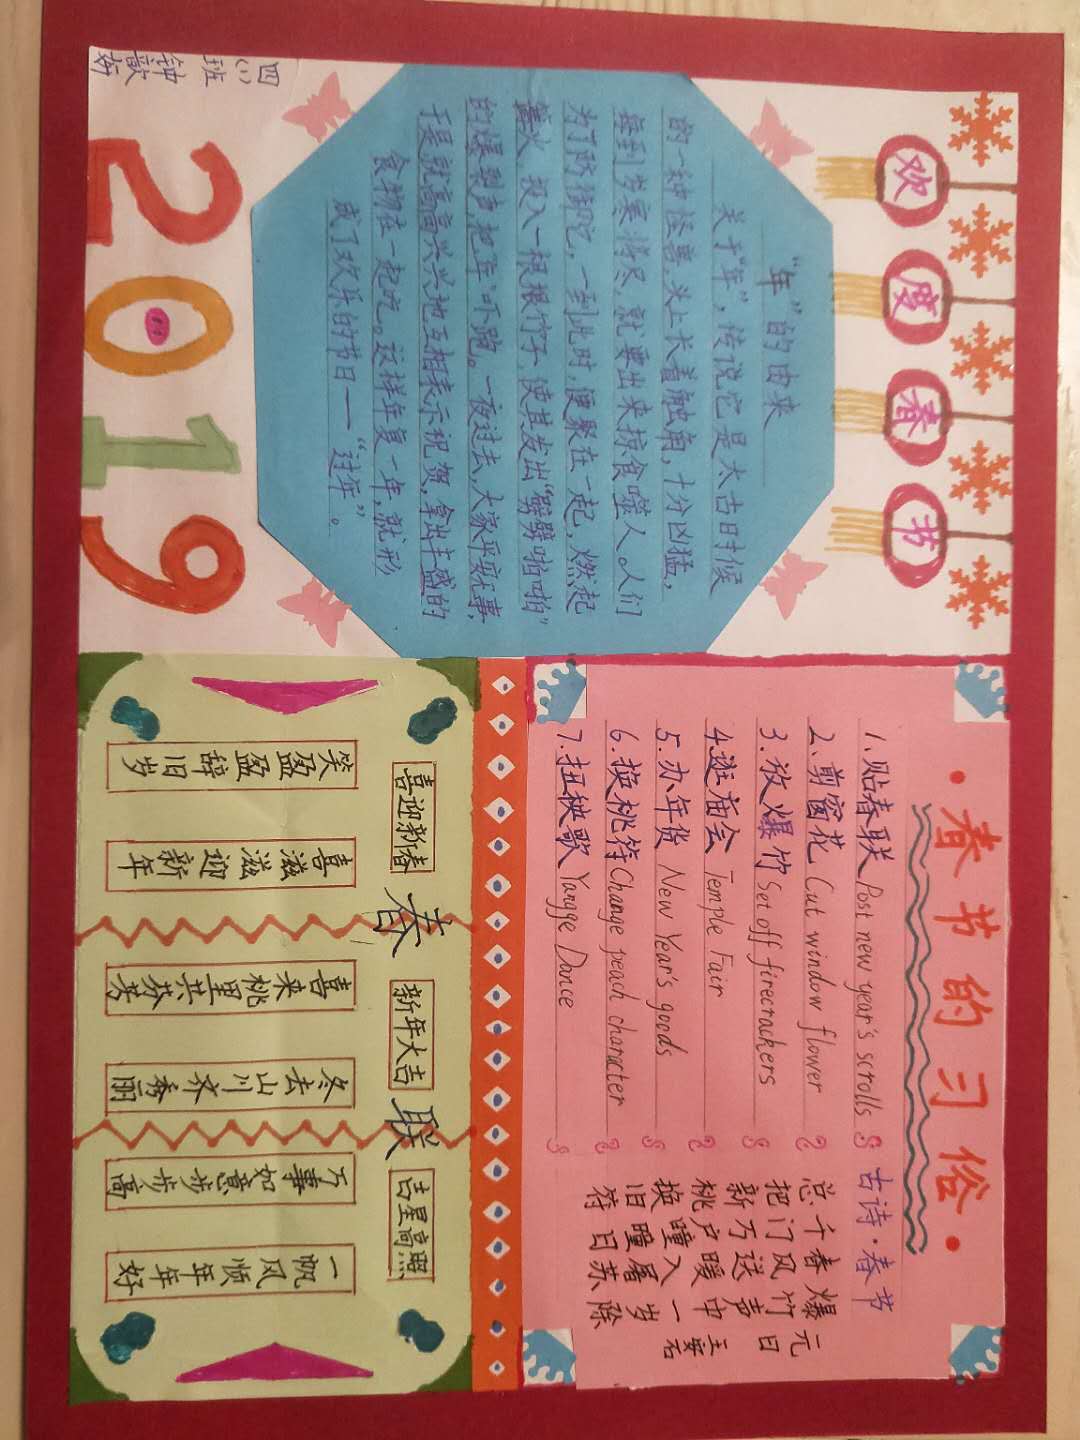 欢度春节
"年"的由来
关于"年",传说它是太古时候
的一种怪兽,头上长着触角,十分凶猛,
每到岁寒将尽,就要出来掠食噬人。人们
为了防御它,一到此时,便聚在一起,燃起
篝火,投入一根根竹子,使其发出"劈劈啪啪"
的爆裂声,把"年"吓跑。一夜过去,大家平安无事,
于是就高高兴兴地互相表示祝贺,拿出丰盛的
食物在一起吃。这样年复一年,就形
成了欢乐的节日——"过年"。
2019
四(1)
班
钟歆妤
·春节的习俗·
1.贴春联 Post new year's scrolls
2.剪窗花 Cut window flower
3.放爆竹 Set off firecrackers
4.逛庙会 Temple Fair
5.办年货 New Year's goods
6.换桃符 Change peach character
7.扭秧歌 Yangge Dance
古诗·春节
元日
王安石
爆竹声中一岁除
春风送暖入屠苏
千门万户曈曈日
总把新桃换旧符
春联
喜迎新春
笑盈盈辞旧岁
喜滋滋迎新年
新年大吉
喜来桃里共芬芳
冬去山川齐秀丽
吉星高照
万事如意步步高
一帆风顺年年好